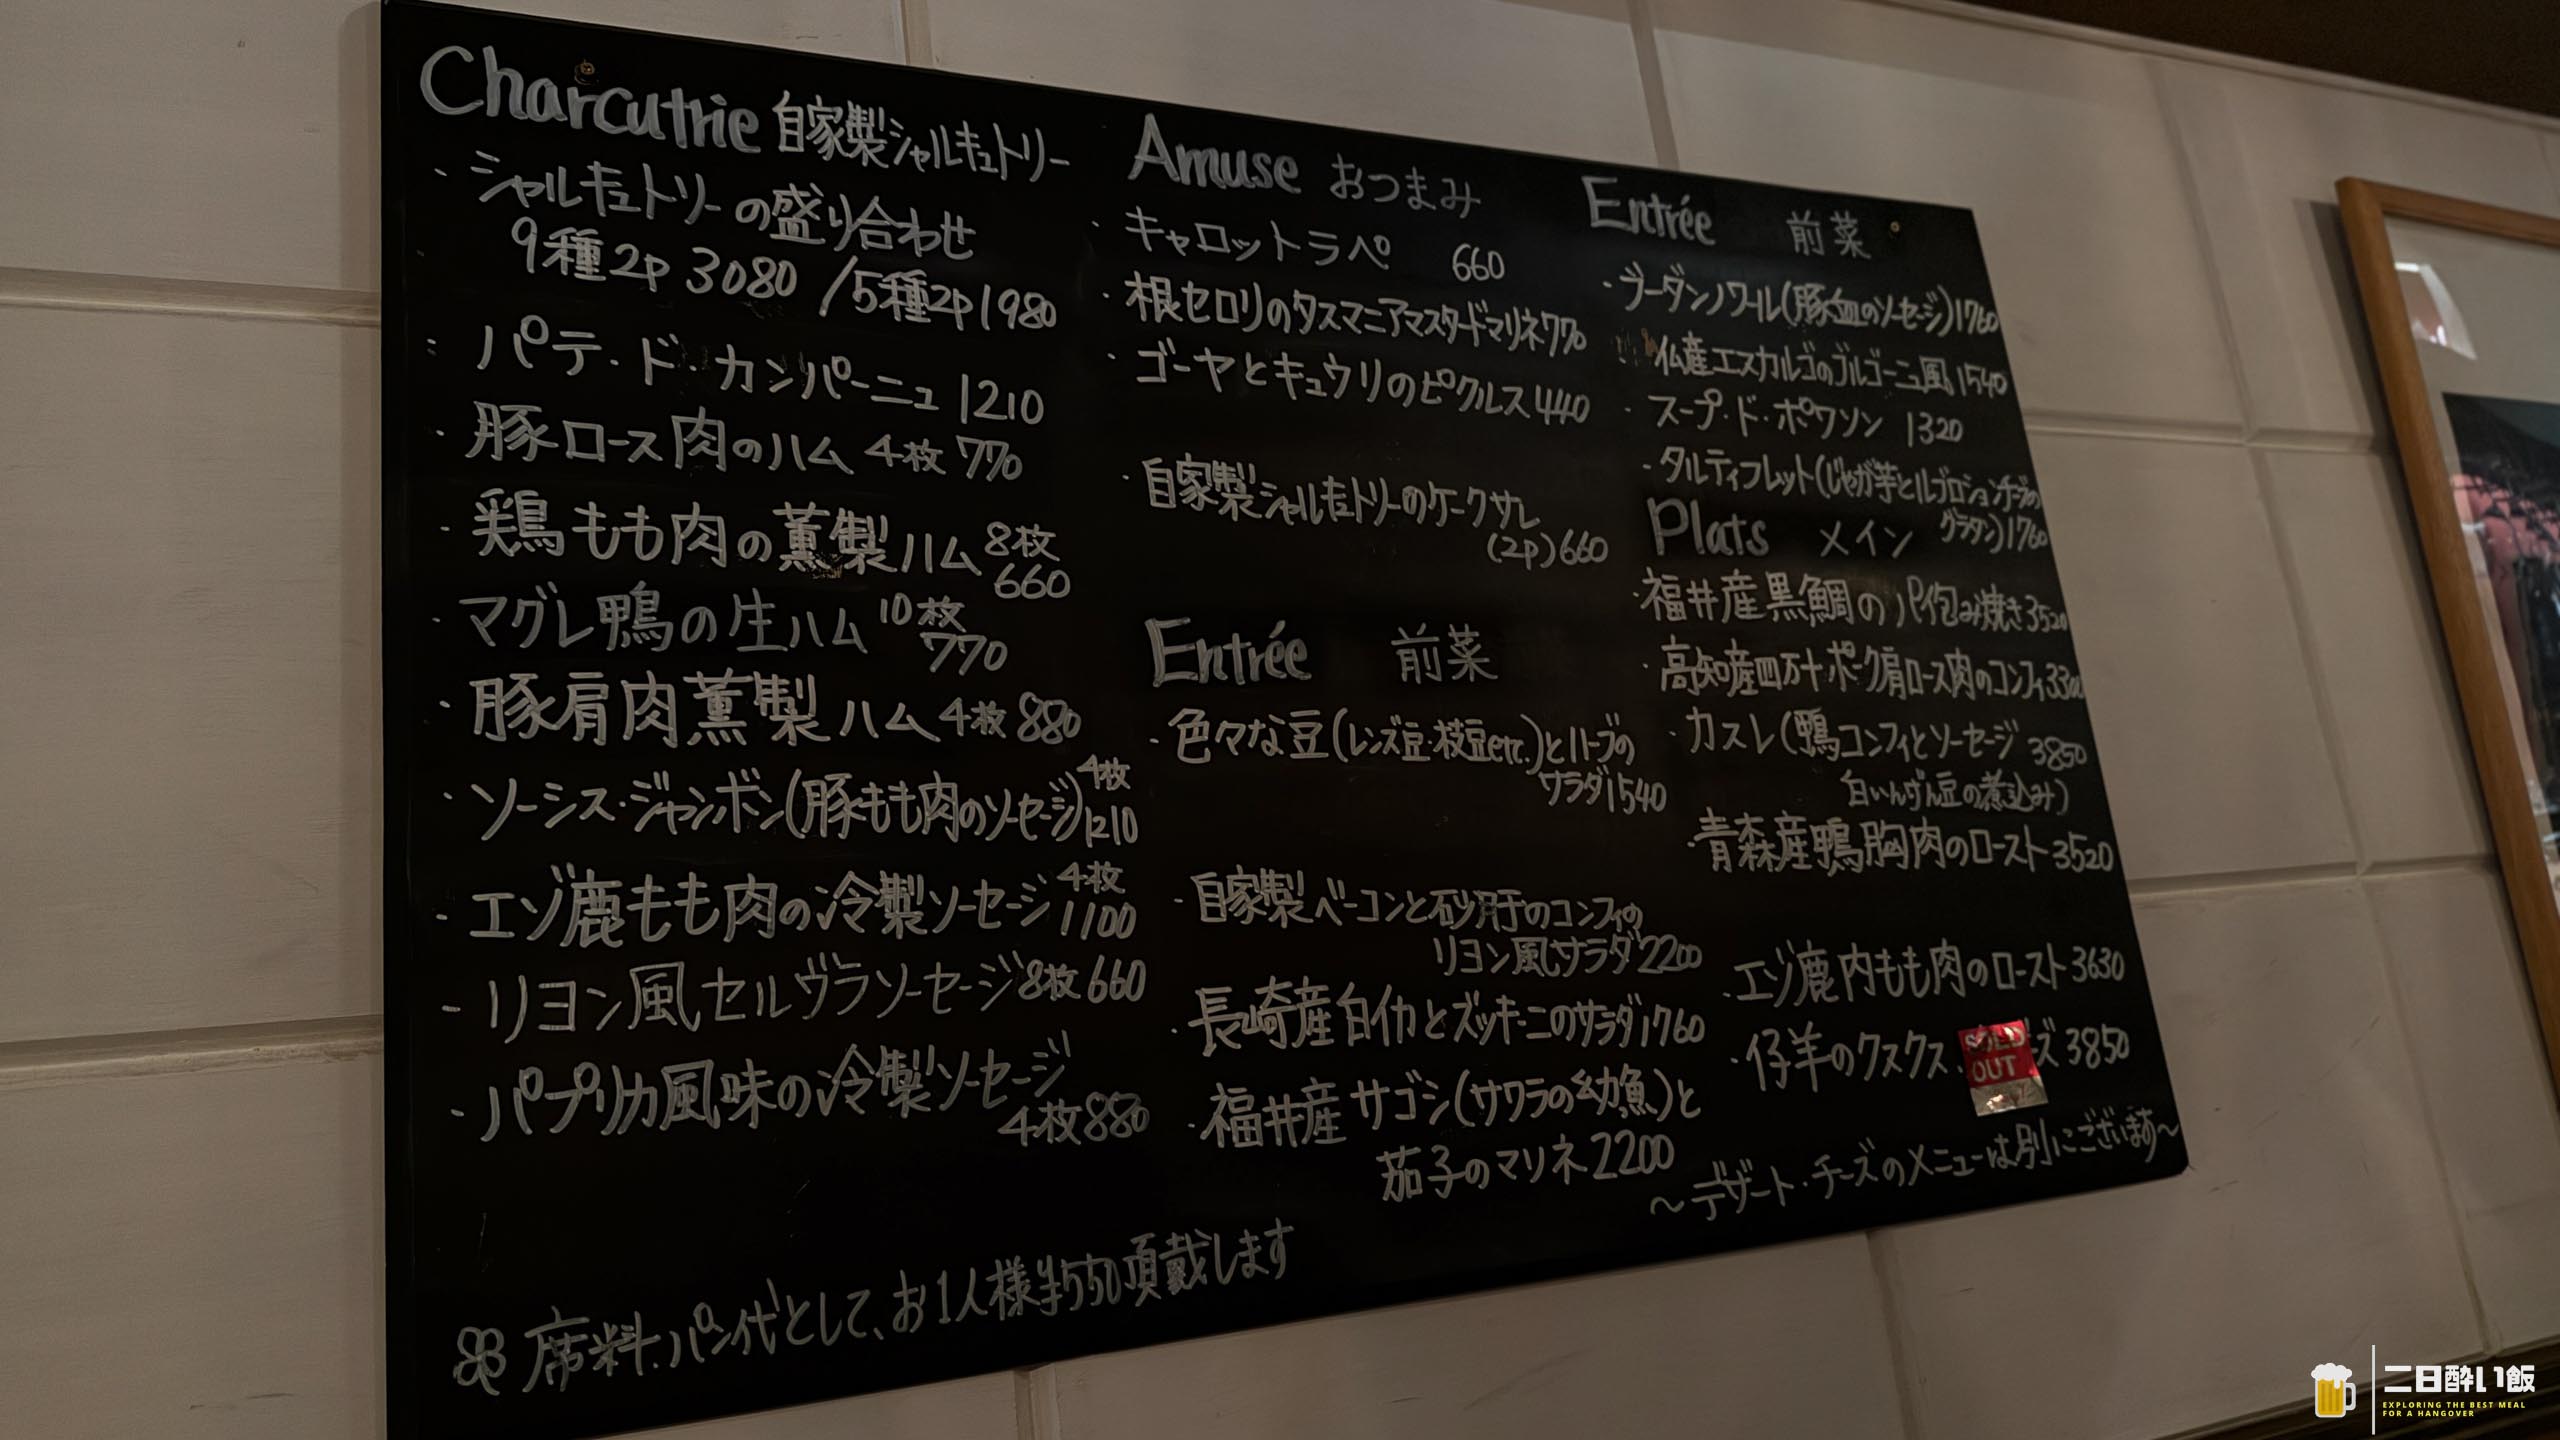 Charcutrie 自家製シャルキュトリー
・シャルキュトリーの盛り合わせ
9種2p 3080 /5種2p1980
・パテ・ド・カンパーニュ 1210
・豚ロース肉のハム 4枚 770
・鶏もも肉の薫製ハム 8枚
660
・マグレ鴨の生ハム 10枚
770
・豚肩肉薫製ハム 4枚 880
・ソーシス・ジャンボン(豚もも肉のソーセージ) 4枚
1210
・エゾ鹿もも肉の冷製ソーセージ 4枚
1100
・リヨン風セルヴラソーセージ 8枚 660
・パプリカ風味の冷製ソーセージ
4枚 880
Amuse おつまみ
・キャロットラペ 660
・根セロリのタスマニアマスタードマリネ770
・ゴーヤとキュウリのピクルス 440
・自家製シャルキュトリーのケークサレ
(2p) 660
Entrée 前菜
・色々な豆(レンズ豆・枝豆etc.)とハーブの
サラダ1540
・自家製ベーコンと砂肝のコンフィの
リヨン風サラダ2200
・長崎産白イカとズッキーニのサラダ1760
・福井産サゴシ(サワラの幼魚)と
茄子のマリネ2200
Entrée 前菜
・ブーダンノワール(豚血のソーセージ)1760
・仏産エスカルゴのブルゴーニュ風1540
・スープ・ド・ポワソン 1320
・タルティフレット(じゃが芋とルブロションチーズの
グラタン)1760
Plats メイン
・福井産黒鯛のパイ包み焼き3520
・高知産四万十ポーク肩ロース肉のコンフィ3300
・カスレ(鴨コンフィとソーセージ 3850
白いんげん豆の煮込み)
・青森産鴨胸肉のロースト3520
・エゾ鹿内もも肉のロースト3630
・仔羊のクスクス SOLD OUT ズ 3850
〜デザート・チーズのメニューは別にございます〜
席料・パン代として、お1人様¥550頂戴します
二日酔い飯
EXPLORING THE BEST MEAL
FOR A HANGOVER